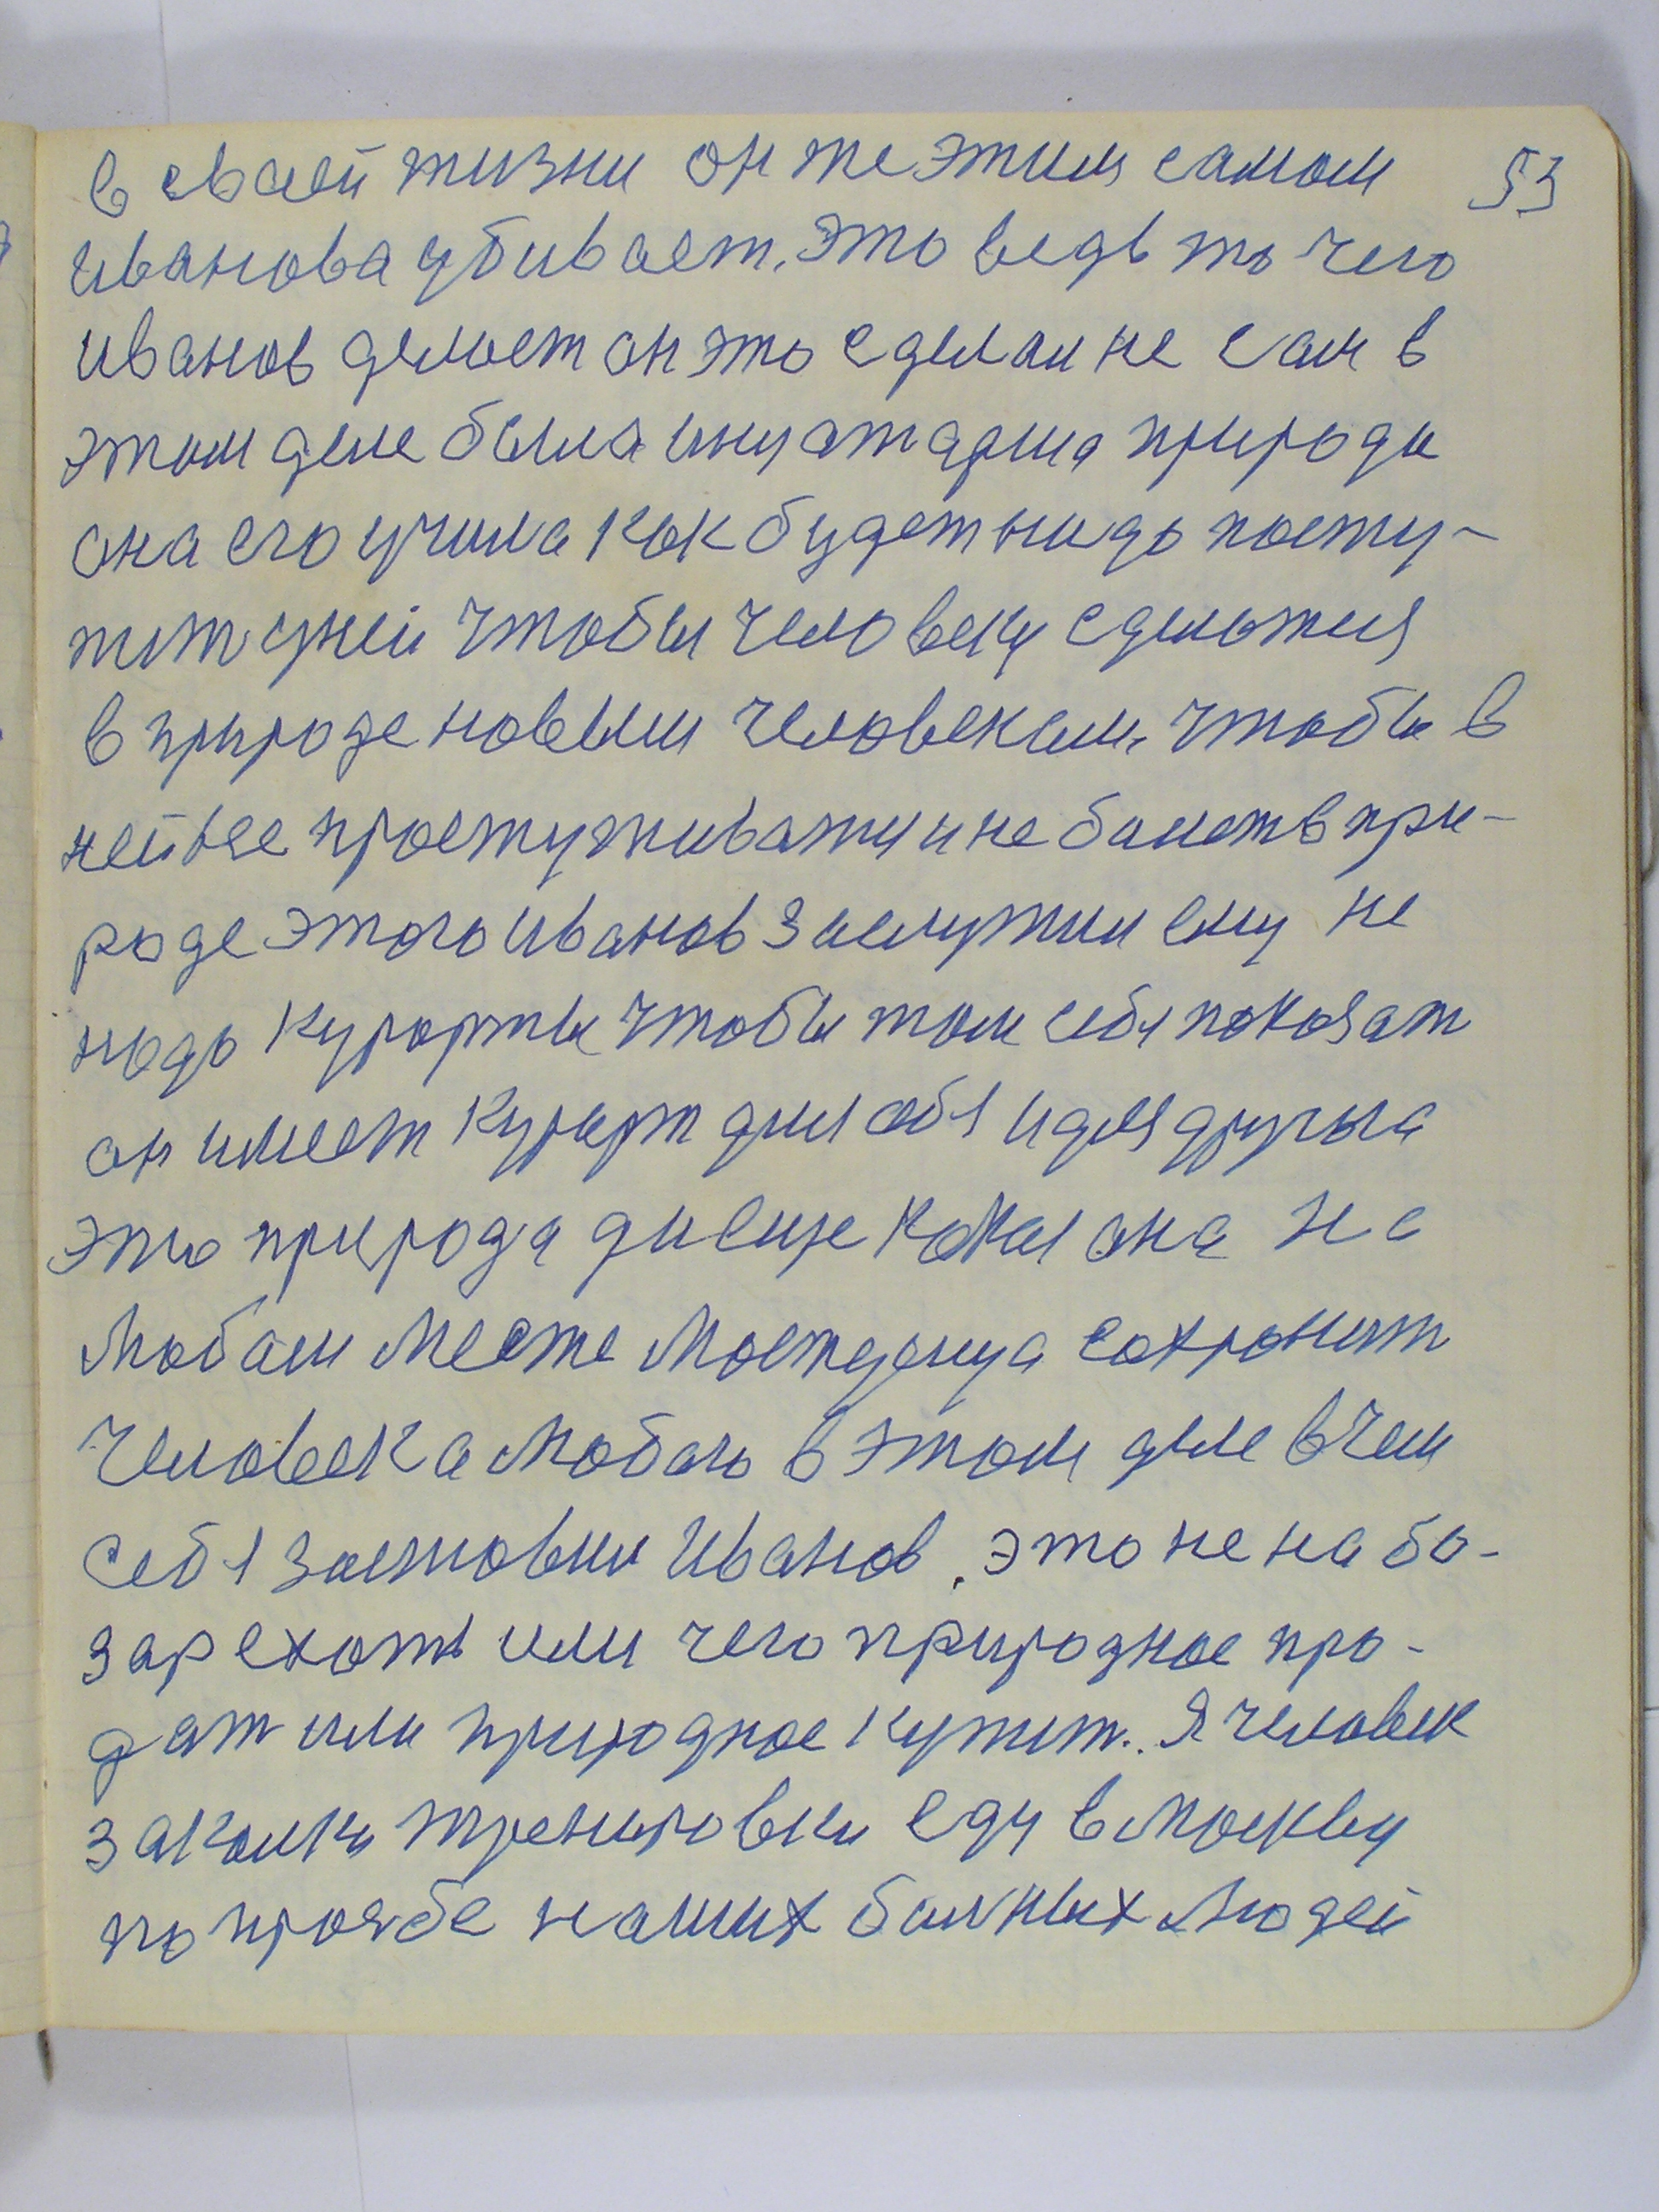 в своей жизни он же этим самом 53
Иванова убивает. Это ведь то чего
Иванов делает он это сделал не сам в
этом деле была инуатарша природа
она его учила как будет надо посту-
пит у ней чтобы человеку сделатця
в природе новым человеком. Чтобы в
ней не простуживатця и не болет в при-
роде этого Иванов заслужил ему не
надо курорты чтобы там себя показат
он имеет курорт для себя и для другыа
это природа
любом месте сохронит
человека любого в этом деле в чем
себя заставил Иванов. это не на ба-
зар ехать или чего природное про-
дат или природное купит. Я человек
закалки тренировки еду в Москву
по прозбе наших балных людей